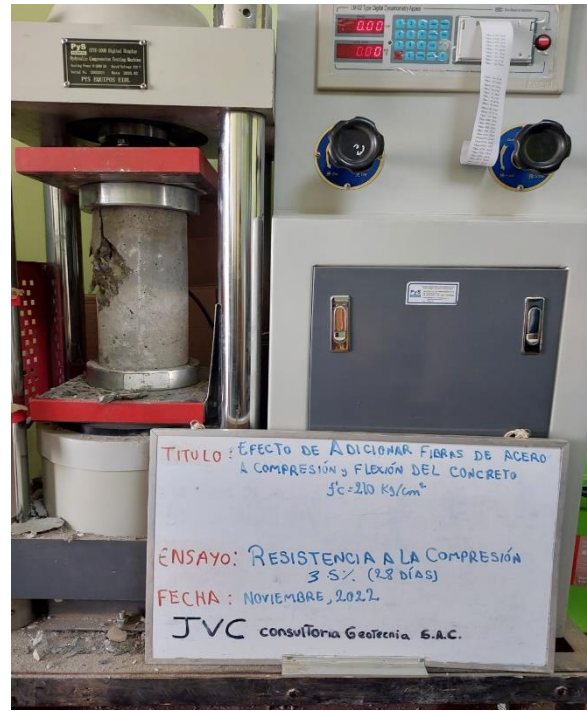 PyS
Digital Display
Hydraulic Compression Testing Machine
PYS EQUIPOS EIRL
0.00
000
PyS
TITULO: EFECTO DE ADICIONAR FIBRAS DE ACERO
A COMPRESIÓN y FLEXIÓN DEL CONCRETO
f'c=210 Kg/cm²
ENSAYO: RESISTENCIA A LA COMPRESIÓN
3 5% (28 DÍAS)
FECHA: NOVIEMBRE, 2022
JVC consultoria Geotecnia S.A.C.